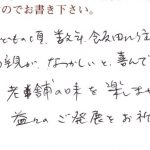 のでお書き下さい。
どもの頃、数対、飯田に住
の親が、なつかしいと、喜んで
老舗の味を楽しませ
益々のご発展をお祈